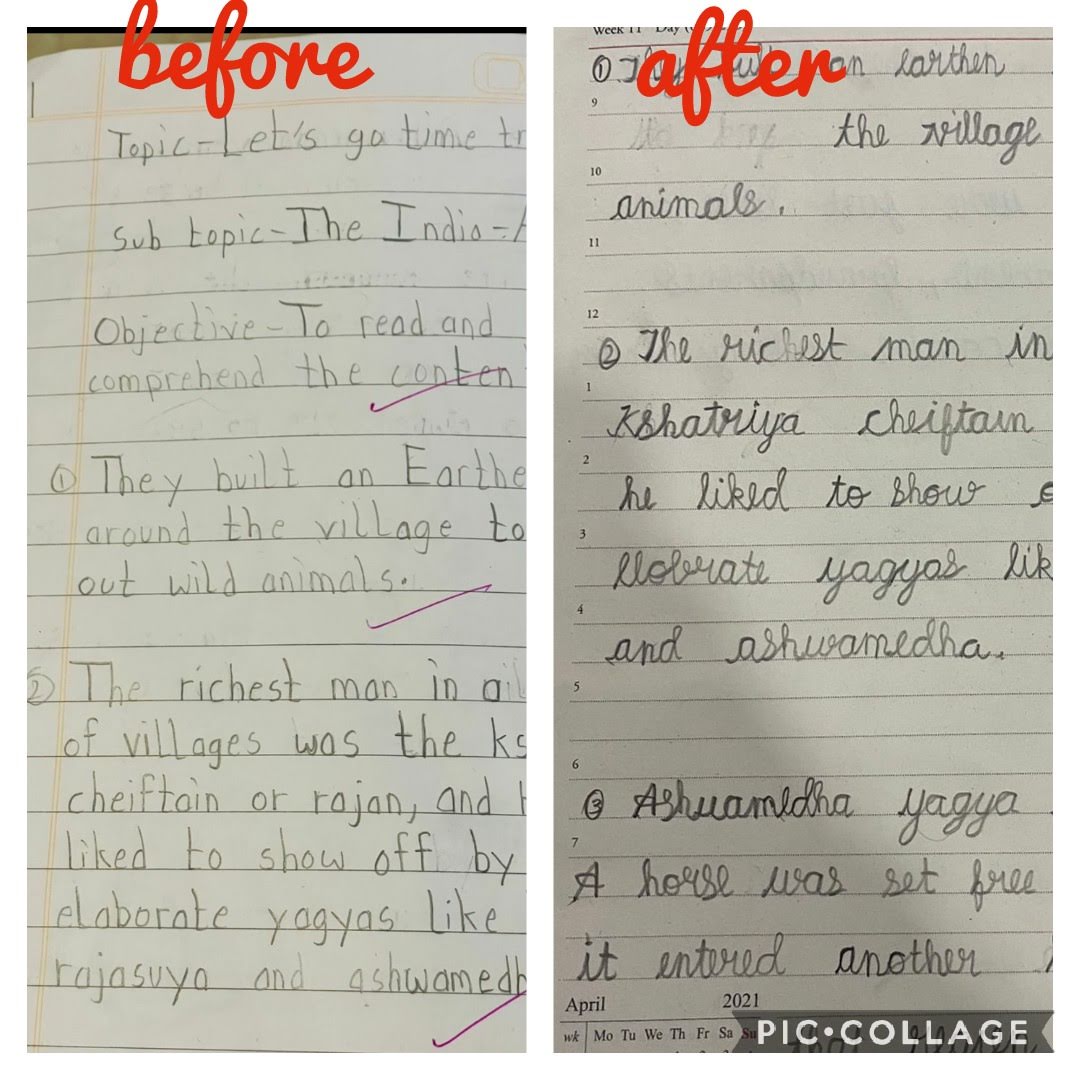 before
Topic-Let's go time tr
Sub topic-The India-
Objective-To read and
comprehend the conten
① They built an Earthe
around the village to
out wild animals.
② The richest man in a
of villages was the ks
cheiftain or rajan, and
liked to show off by
elaborate yagyas like
rajasuya and ashwamedh
after
Week 11 Day
① They built an earthen
9
the village
10
animals.
11
12
② The richest man in
1
Kshatriya cheiftain
2
he liked to show
3
yagyas lik
4
and ashwamedha.
5
6
③ Ashwamedha yagya
7
A horse was set free
it entered another
April 2021
wk Mo Tu We Th Fr Sa Su
PIC•COLLAGE